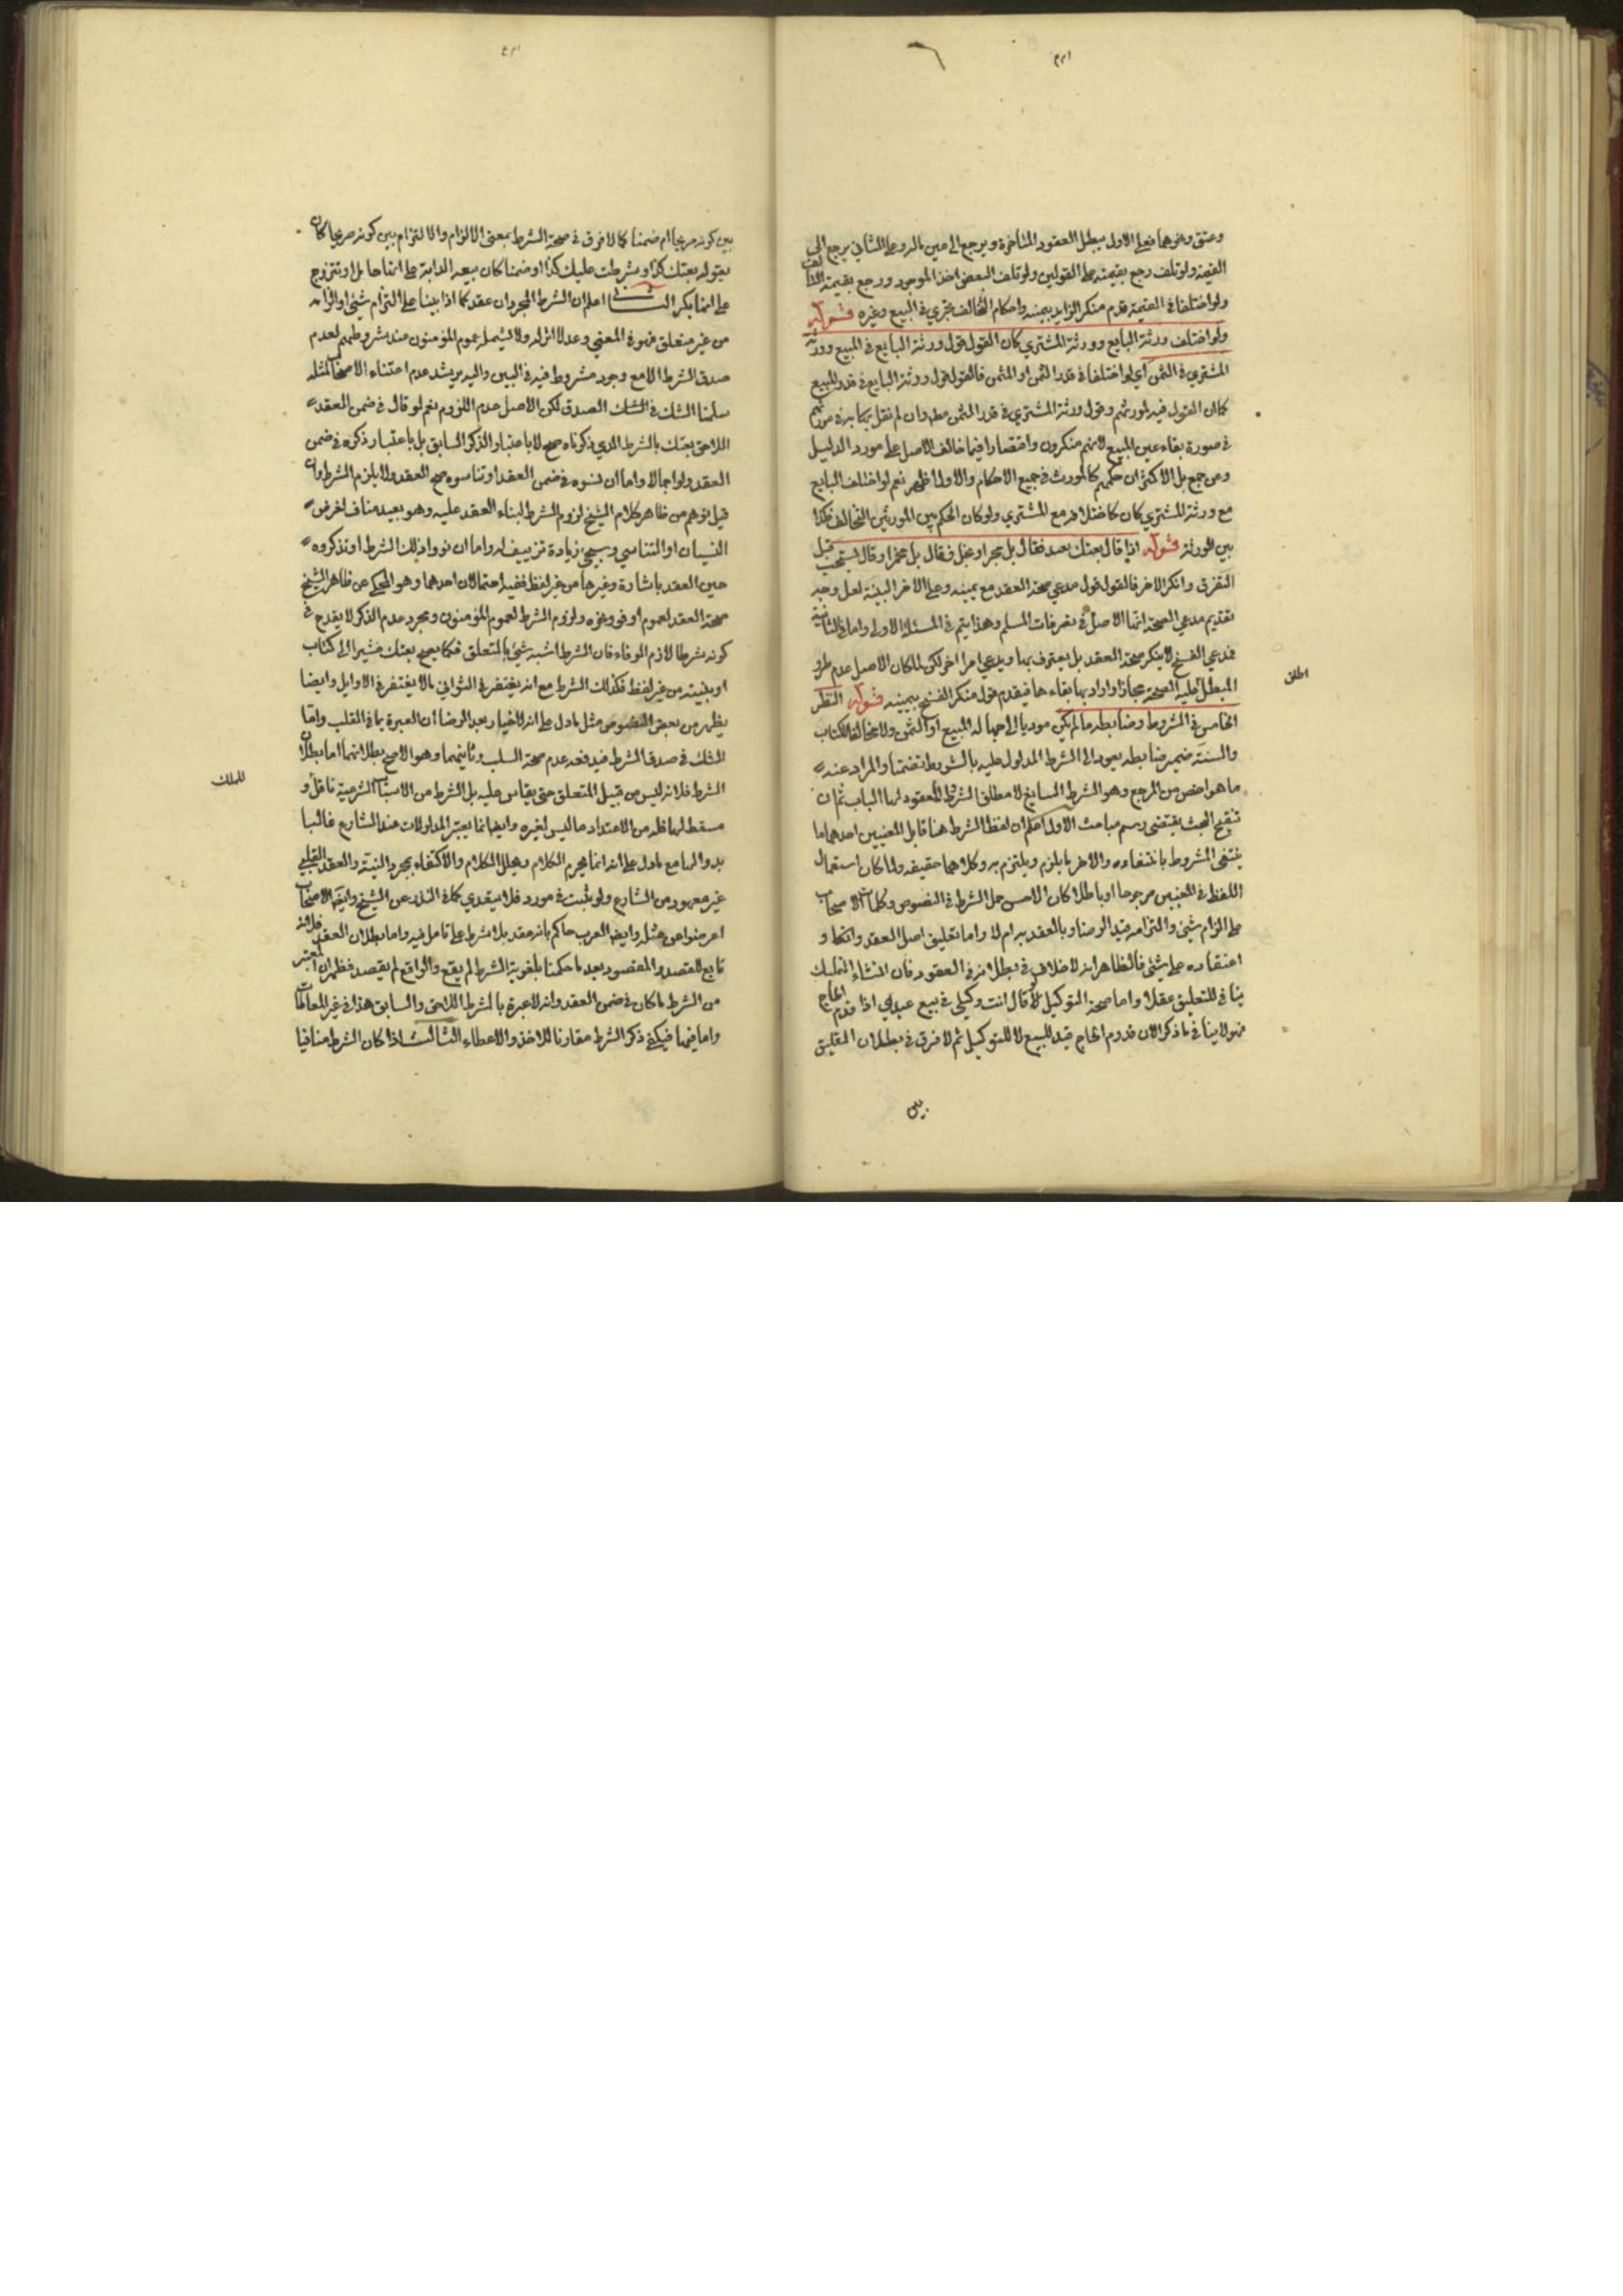 وعتق ونحوهما فعلى الاول يبطل العقود المتأخرة ويرجع الى عين ماله وعلى الثاني يرجع الى
القيمة ولو تلف رجع بقيمته على القولين ولو تلف البعض اخذ الموجود ورجع بقيمة التالف
ولو اختلفا في القيمة قدم منكر الزايد بيمينه واحكام التخالف تجري في المبيع وغيره قوله
ولو اختلف ورثة البايع وورثة المشتري كان القول قول ورثة البايع في المبيع وورثة
المشتري في الثمن اي لو اختلفا في قدر الثمن او المثمن فالقول قول ورثة البايع في قدر المبيع
كما ان القول فيه لمورثهم وقول ورثة المشتري في قدر الثمن مطه وان لم نقل بكما به في مورثهم
في صورة بقاء عين المبيع لانهم منكرون واقتصارا فيما خالف الاصل على مورد الدليل
وعن جمع بل الاكثر ان حكمهم كالمورث في جميع الاحكام والاول اظهر نعم لو اختلف البايع
مع ورثة المشتري كان كاختلافه مع المشتري ولو كان الحكم بين المورثين التحالف فكذا
بين الورثة قوله اذا قال بعتك بعبد فقال بل بحر او بخل فقال بل بخمر او قال فسخت قبل
التفرق وانكر الاخر فالقول قول مدعي صحة العقد مع يمينه وعلى الاخر البينة لعل وجه
تقديم مدعي الصحة انها الاصل في تصرفات المسلم وهذا يتم في المسئلة الاولى واما في الثانية
فمدعي الفسخ لا ينكر صحة العقد بل يعترف بها ويدعي امرا اخر لكن لما كان الاصل عدم طرو
المبطل عليه الصحة مجازا واراد بها بقاءها فيقدم قول منكر الفسخ بيمينه قوله النظر
اطلق
الخامس في الشروط وضابطه ما لم يكن موديا الى جهالة المبيع او الثمن ولا مخالفا للكتاب
والسنة ضمير ضابطه يعود الى الشرط المدلول عليه بالشروط تضمنا والمراد عنه
ما هو اخص من المرجع وهو الشرط السايغ لا مطلق الشرط المعقود لها الباب ثم ان
تنقيح البحث يقتضي رسم مباحث الاول اعلم ان لفظ الشرط هنا قابل المعنيين احدهما ما
ينتفي المشروط بانتفاءه والاخر ما يلزم ويلتزم به وكلاهما حقيقه ولما كان استعمال
اللفظ في المعنيين مرجوحا او باطلا كان الاحسن حمل الشرط في النصوص وكلمات الاصحاب
على الزام شيئ والتزامه قيد الرضا وبالعقد به ام لا واما تعليق اصل العقد وانعقاد و
اعتقاده على شيئ فالظاهر انه لاخلاف في بطلانه في العقود فان انشاء التمليك
ينافي للتعليق عقلا واما صحة التوكيل لو قال انت وكيلي في بيع عبدي اذا قدم الحاج
فهو لا ينافي ما ذكر الان قدوم الحاج قيد للبيع لا للتوكيل ثم لا فرق في بطلان التعليق
بين
بين كونه صريحا ام ضمنا كما لا فرق في صحة الشرط بمعنى الالزام والالتزام بين كونه صريحا كان
يقول بعتك كذا وشرطت عليك كذا او ضمنا كان يبيعه الدابة على انها حامل او تتزوج
على انها بكر الثاني اعلم ان الشرط المجرد ان عقد كما اذا بينا على التزام شيئ او الزامه
من غير متعلق فهو في المعنى وعد لا اثر له ولا يشمله عموم المؤمنون عند شروطهم لعدم
صدق الشرط الا مع وجود مشروط فيه في البين واليه يرشد عدم اعتناء الاصحاب لمثله
سلمنا الشك في الشك الصدق لكن الاصل عدم اللزوم نعم لو قال في ضمن العقد
اللاحق بعتك بالشرط الذي ذكرناه صح لا باعتبار الذكر السابق بل باعتبار ذكره في ضمن
العقد ولو اجمالا واما ان نسوه في ضمن العقد او تناسوه صح العقد ولا يلزم الشرط وان
قيل توهم من ظاهر كلام الشيخ لزوم الشرط لبناء العقد عليه وهو بعيد مناف لغرض
النسيان او التناسي وسيجيئ زيادة تزييف له واما ان نووا ذلك الشرط او تذكروه
حين العقد باشارة وغيرها من غير لفظ ففيه احتمالان احدهما وهو المحكي عن ظاهر الشيخ
صحة العقد لعموم اوفوا ونحوه ولزوم الشرط لعموم المؤمنون ومجرد عدم الذكر لا يقدح في
كونه شرطا لازم الوفاء فان الشرط اشبه شئ بالمتعلق فكما يصح بعتك مشيرا الى كتاب
او بنيته من غير لفظ فكذلك الشرط مع انه يغتفر في الثواني مالا يغتفر في الاوايل وايضا
يظهر من بعض النصوص مثل ما دل على انه لا خيار بعد الرضا ان العبرة بما في القلب واما
الشك في صدق الشرط فيدفعه عدم صحة السلب وثانيهما وهو الاصح بطلانهما اما بطلان
الشرط فلانه ليس من قبيل المتعلق حتى يقاس عليه بل الشرط من الاسباب الشرعية ناقل و
للملك
مسقط لها فله من الاعتداد ما ليس لغيره وايضا انما يعتبر المدلولات عند الشارع غالبا
بدوالها مع ما دل على انه انما يحرم الكلام ويحلل الكلام والاكتفاء بمجرد النية والعقد القلبي
غير معهود من الشارع ولو ثبت في مورد فلا يتعدى كما في النذر عن الشيخ وايضا الاصحاب
اعرضوا عن مثله وايضا العرف حاكم بانه عقد بلا شرط على تامل فيه واما بطلان العقد فلانه
تابع للقصد والمقصود بعد ما حكمنا بلغوية الشرط لم يقع والواقع لم يقصد فظهر ان المعتبر
من الشرط ما كان في ضمن العقد وانه لا عبرة بالشرط اللاحق والسابق هذا في غير المعاطات
واما فيها فيكفي ذكر الشرط مقارنا للاخذ والاعطاء الثالث اذا كان الشرط منافيا